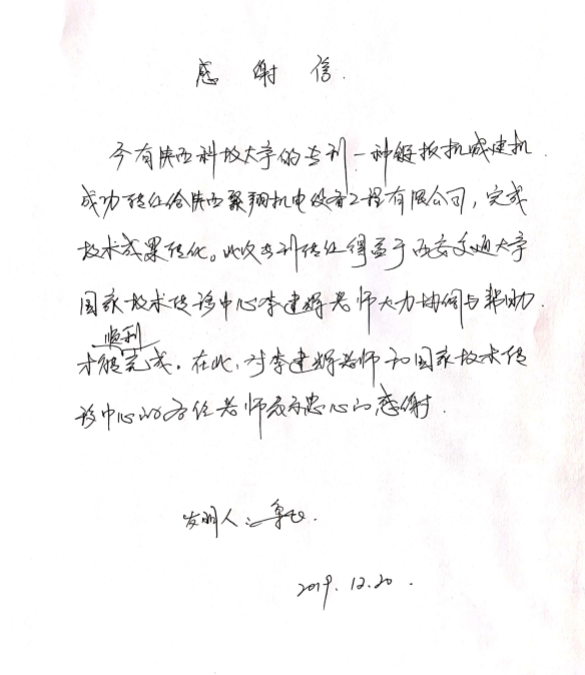 感谢信.
今有陕西科技大学的专利一种链板机减速机
成功转让给陕西聚翔机电设备工程有限公司，完成
技术成果转化。此次专利转让得益于西安交通大学
国家技术转移中心李建辉老师大力协同与帮助.
顺利
才能完成。在此，对李建辉老师和国家技术转
移中心的各位老师表示忠心的感谢.
发明人：
2019.12.20.